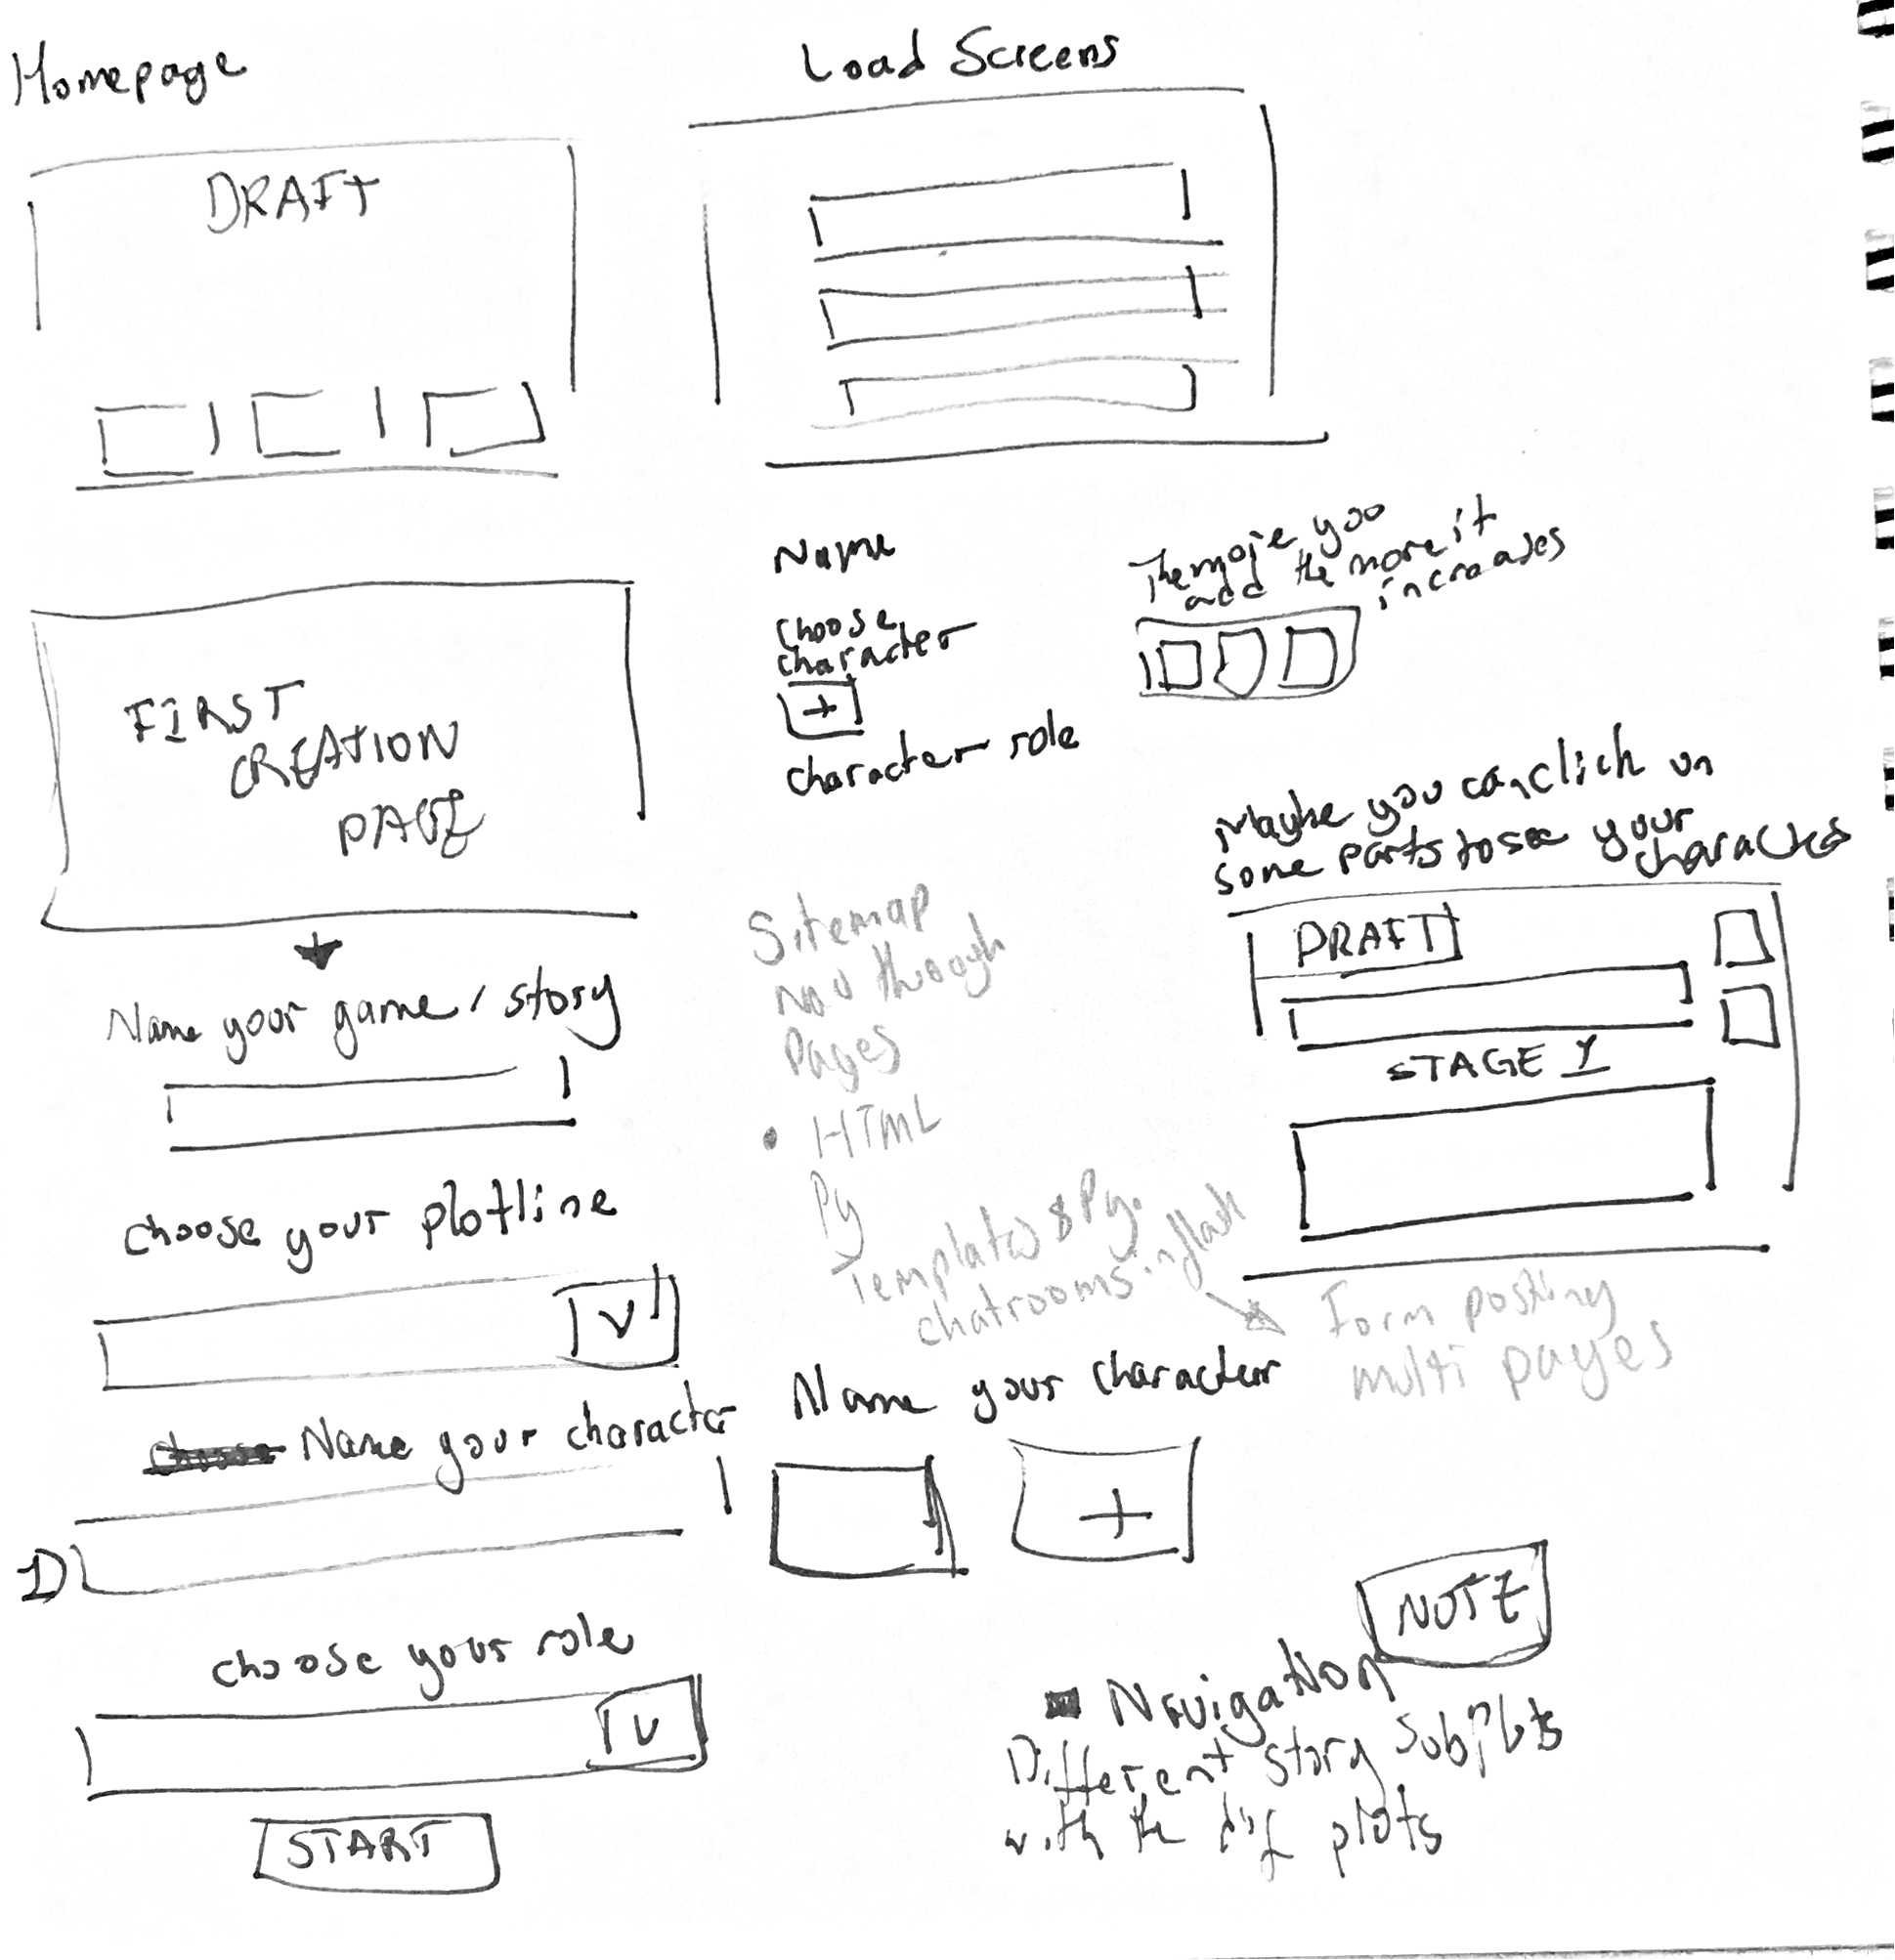 Homepage
DRAFT
Load Screens
FIRST
CREATION
PAGE
Name your game / story
choose your plotline
Name your character
1)
choose your role
V
V
START
Name
choose
character
+
character role
The more you
add the more it
increases
Maybe you can click on
some parts to see your
character
DRAFT
STAGE 1
Sitemap
through
Pages
• HTML
Py
Templates & Py.
chatrooms in flask
Form posting
multi pages
Name your character
+
NOTE
Navigation
Different story subplots
with the dif plots